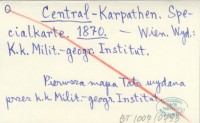 Central-Karpathen. Spe-
cialkarte. 1870. — Wien. Wyd:
K.k. Milit.-geogr. Institut.
Pierwsza mapa Tatr wydana
przez k.k. Milit.-geogr. Institut.
BT 1004/